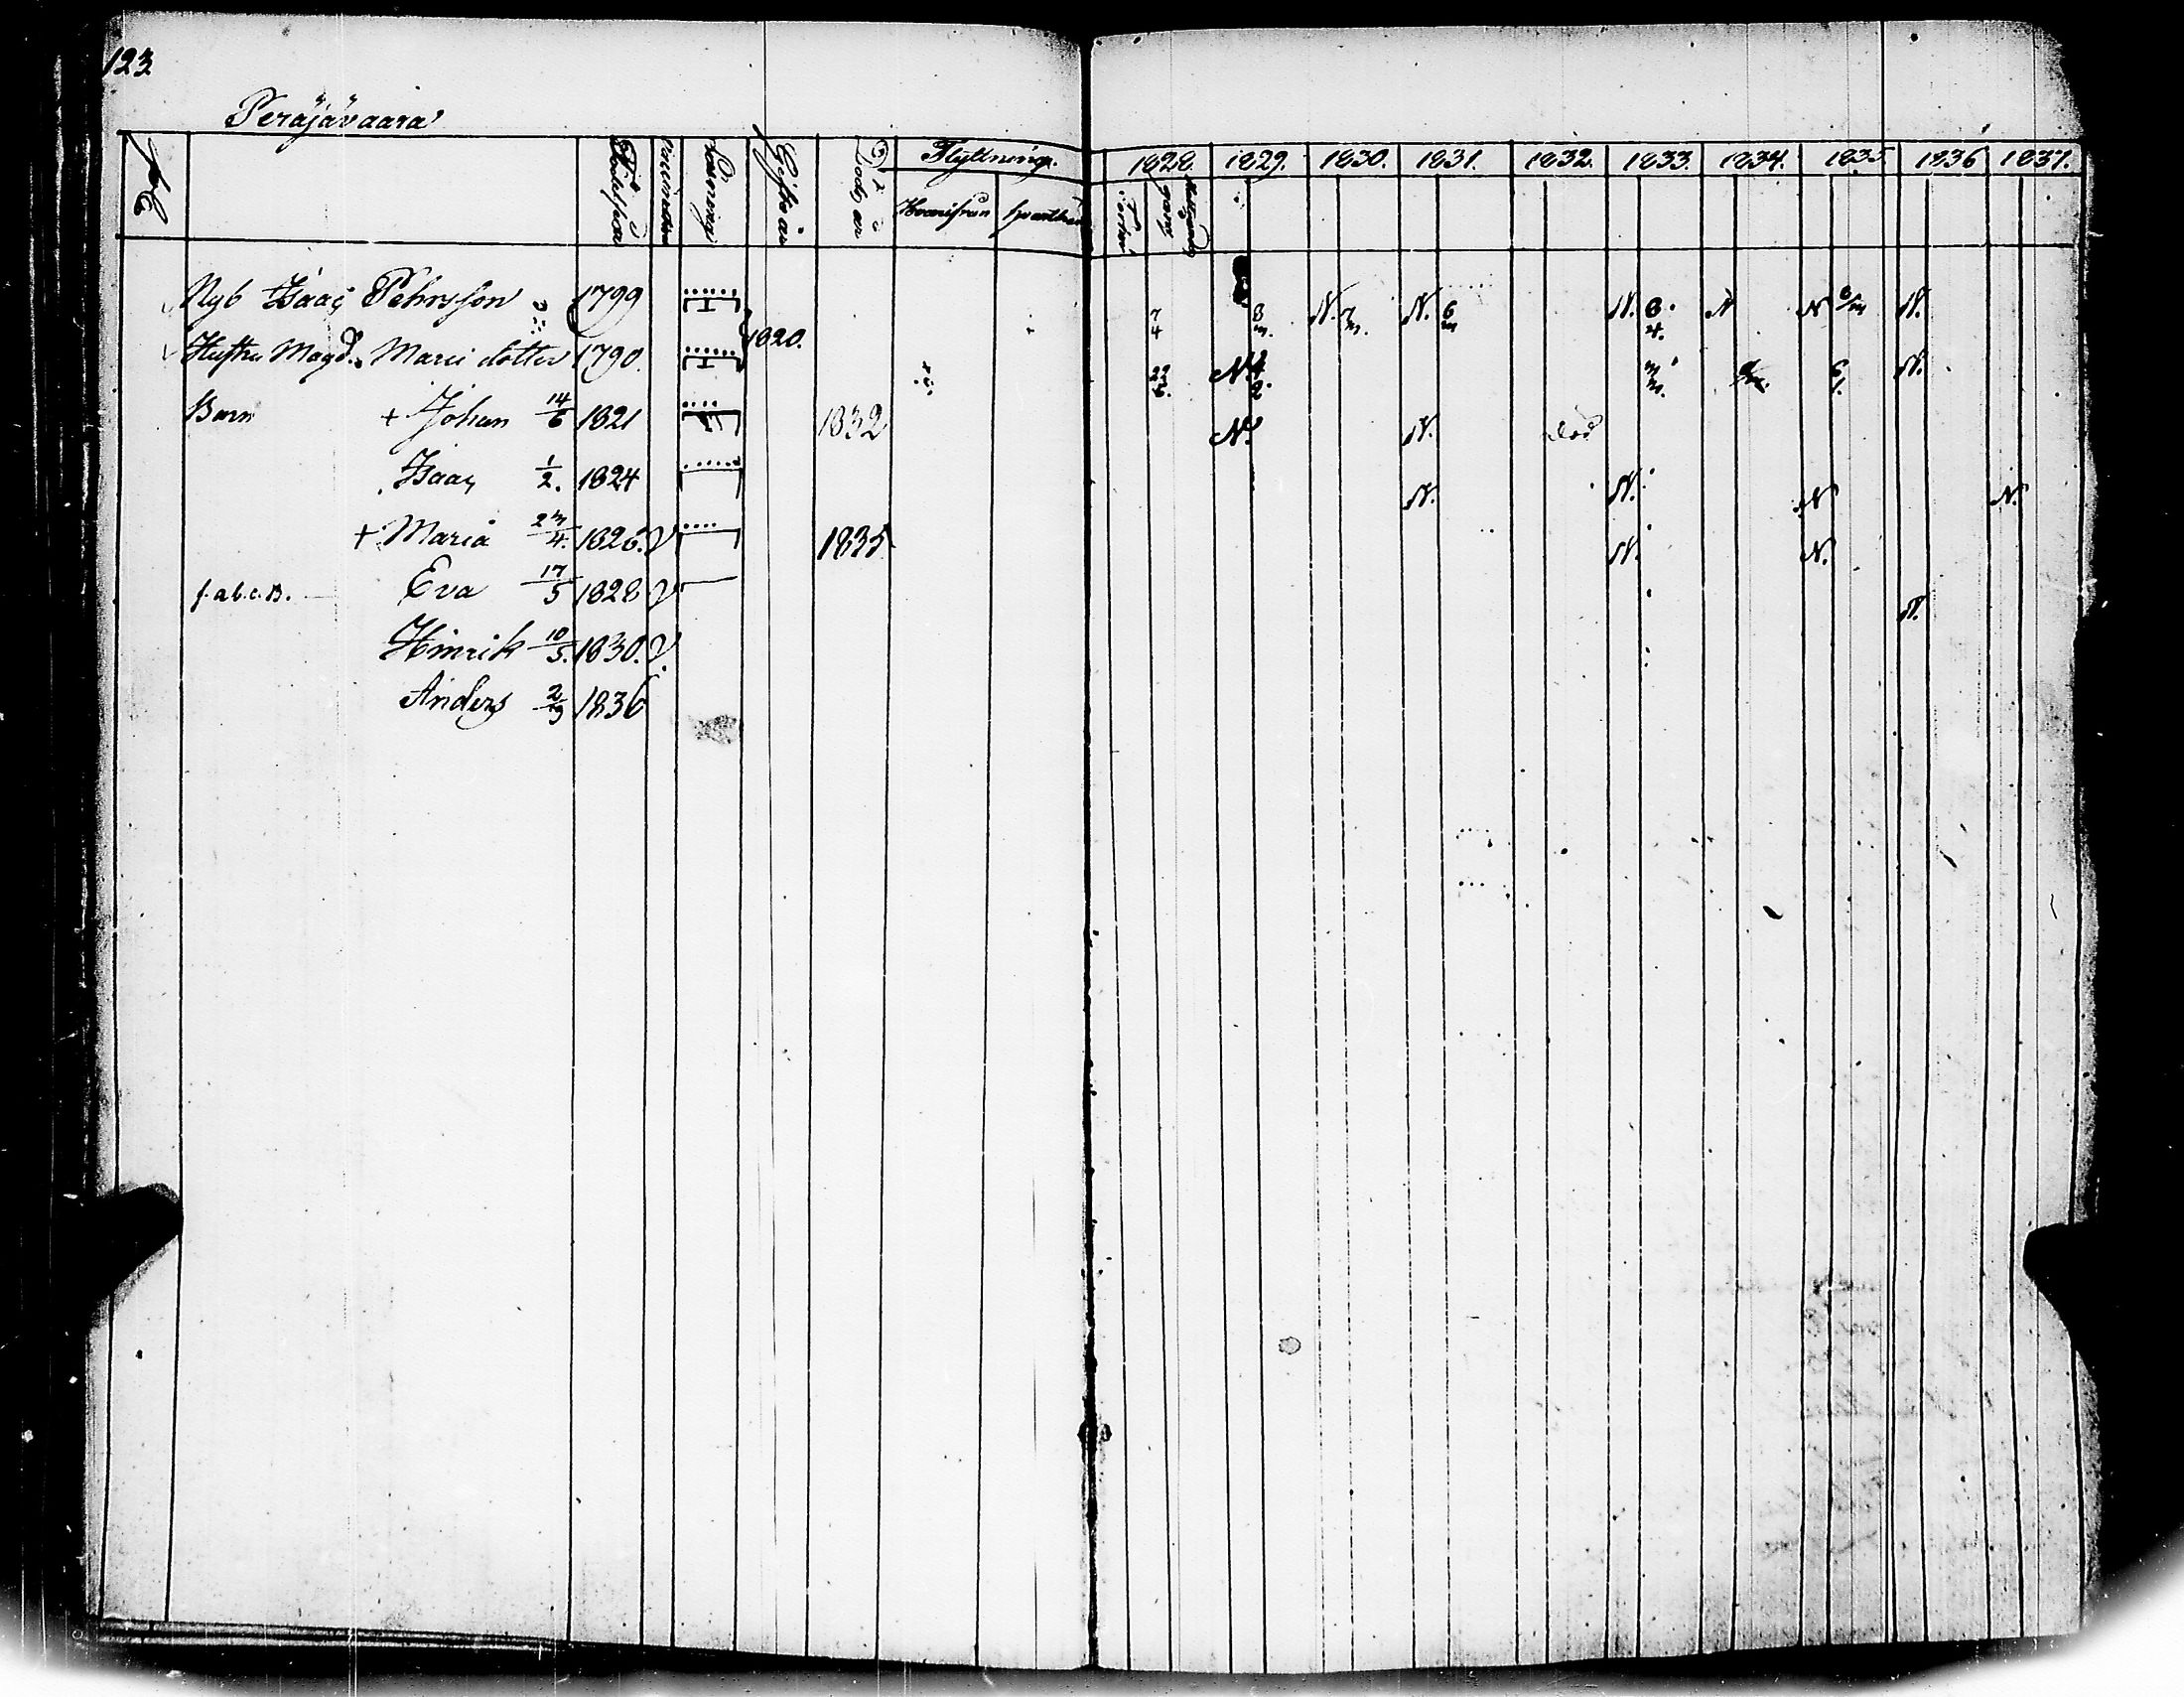 123
Peräjävaara
Flyttning.
Giftoår Död, år Hvarifrån hvarthän
1828. 1829. 1830. 1831. 1832. 1833. 1834. 1835 1836 1837.
Nyb Isaac Pehrsson 1799 7/4 8/m. N. 7/m. N. 6/m N. 8/4. N N 6/m N.
1820.
Hustru Magd. Maria dotter 1790. 22/6. N. N.
Barn + Johan 14/6 1821 1832 N. N. död
Isaac 1/2. 1824 N. N. N N.
+ Maria 1826. V 1835 N. N.
f. a b. c. B. Eva 17/5 1828 V N.
Hinrik 10/5. 1830. V.
Anders 2/9 1836